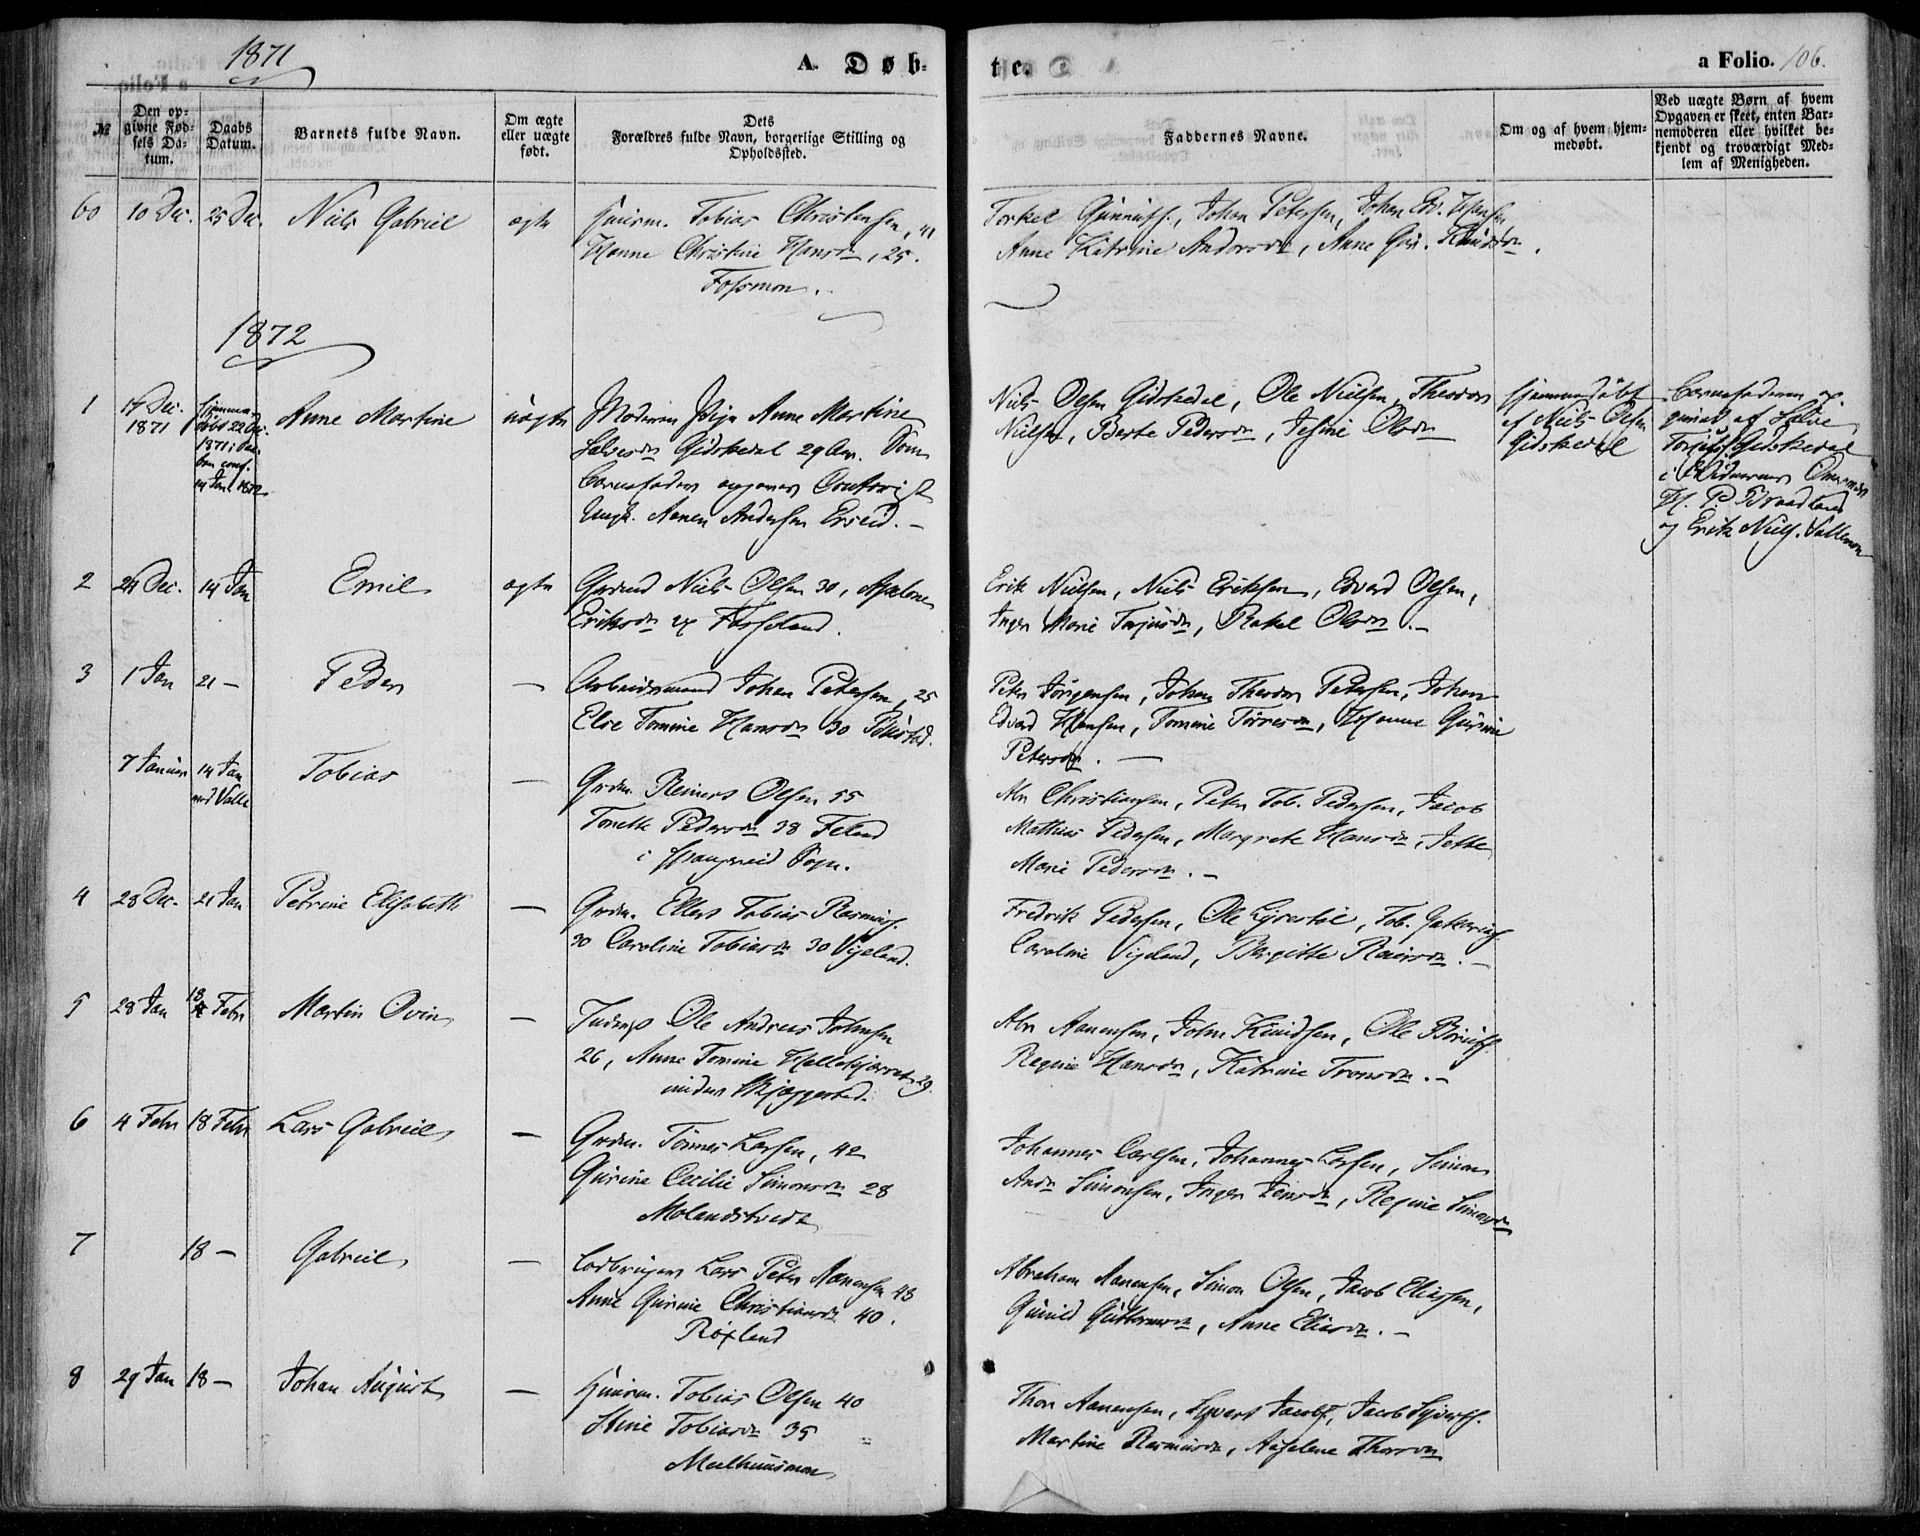 1871
A. Døb-
te.
a Folio. 106.
№
Den op-
givne Fød-
sels Da-
tum.
Daabs
Datum.
Barnets fulde Navn.
Om ægte
eller uægte
født.
Dets
Forældres fulde Navn, borgerlige Stilling og
Opholdssted.
Faddernes Navne.
Om og af hvem hjem-
medøbt.
Ved uægte Børn af hvem
Opgaven er skeet, enten Bar-
nemoderen eller hvilket be-
kjendt og troværdigt Med-
lem af Menigheden.
60 10 Dec. 25 Dec. Niels Gabriel ægte Huusm. Tobias Christensen, 41
Hanne Christine Hansdn, 25.
Fossmon.
Torkel Gunnufs., Johan Petersen, Johan Ed. Hansen
Anne Katrine Andersdn, Anne Gur. Knudsdn.
1872
1 17 Dec.
1871
Hjemme-
døbt 22 Dec.
1871 i Daa-
ben conf.
14 Jan 1872
Anne Martine uægte Moderen Pige Anne Martine
Salvesdn Gidskedal 29 Aar. Som
Barnefader opgives
Ungk. Aanen Andersen Erseid. -
Niels Olsen Gidskedal, Ole Nielsen, Theodor
Nielsen, Berte Pedersdn, Jesine Olsdn
Hjemmedøbt
af Niels Olsen
Gidskedal
Barnefaderen op-
givet af Salve
Gidskedal
i Vidnernes
H. P. Braadland
og Erik Niels. Vallemon
2 24 Dec. 14 Jan Emil ægte Grdmd Niels Olsen 30, Aselene
Eriksdn 28 Fasseland.
Erik Nielsen, Niels Eriksen, Edvard Olsen,
Inger Marie Terjesdn, Rakel Olsdn. -
3 1 Jan 21 - Peder - Arbeidsmand Johan Petersen, 25
Else Tomine Hansdn 30
Peter Jörgensen, Johan Theodor Pedersen, Johan
Edvard Hansen, Tomine Törresdn, Johanne Gurine
Petersdn. -
7 Januar 14 Jan
ved Valle
Tobias - Grdm. Reinert Olsen 55
Tonette Pedersdn 38 Feland
i Spangereid Sogn.
Abr Christiansen, Peter Tob. Pedersen, Jacob
Mathias Pedersen, Margrete Hansdn, Jette
Marie Pedersdn. -
4 28 Dec. 21 Jan Petrine Elisabeth - Grdm. Ellert Tobias Rasmuss.
30 Caroline Tobiasdn 30 Vigeland.
Fredrik Pedersen, Ole Lyrestöl, Tob.
Caroline Vigeland, Birgitte Reiersdn. -
5 28 Jan 18 Febr Martin Ovin - Inderst Ole Andreas Johnsen
26, Anne Tomine Hallekjærret 29.
under Skjæggestad.
Abr Aanensen, John Knudsen, Ole
Regine Hansdn, Katrine Tronsdn. -
6 4 Febr 18 Febr Lars Gabriel - Grdm. Tönnes Larsen, 42
Gurine Cecilie Simonsdn 28
Molandstvedt
Johannes Carlsen, Johannes Larsen, Simon
Andr Simonsen, Inger Jensdn, Regine Simonsdn
7 18 - Gabriel - Lodbruger Lars Peter Aanensen 43
Anne Gurine Christiansdn 40.
Röyland
Abraham Aanensen, Simon Olsen, Jacob Eliassen,
Gunild Guttormsdn, Anne Eliasdn. -
8 29 Jan 18 - Johan August - Huusm. Tobias Olsen 40
Stine Tobiasdn 35
Melhuusmon
Thore Aanensen, Syvert Jacobs., Jacob Syverts.
Martine Rasmusdn, Aaselene Thorsdn